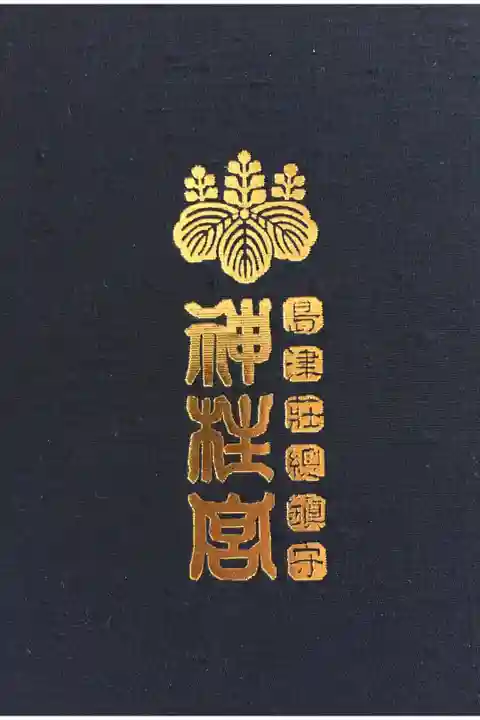 島津莊總鎮守
神柱宮